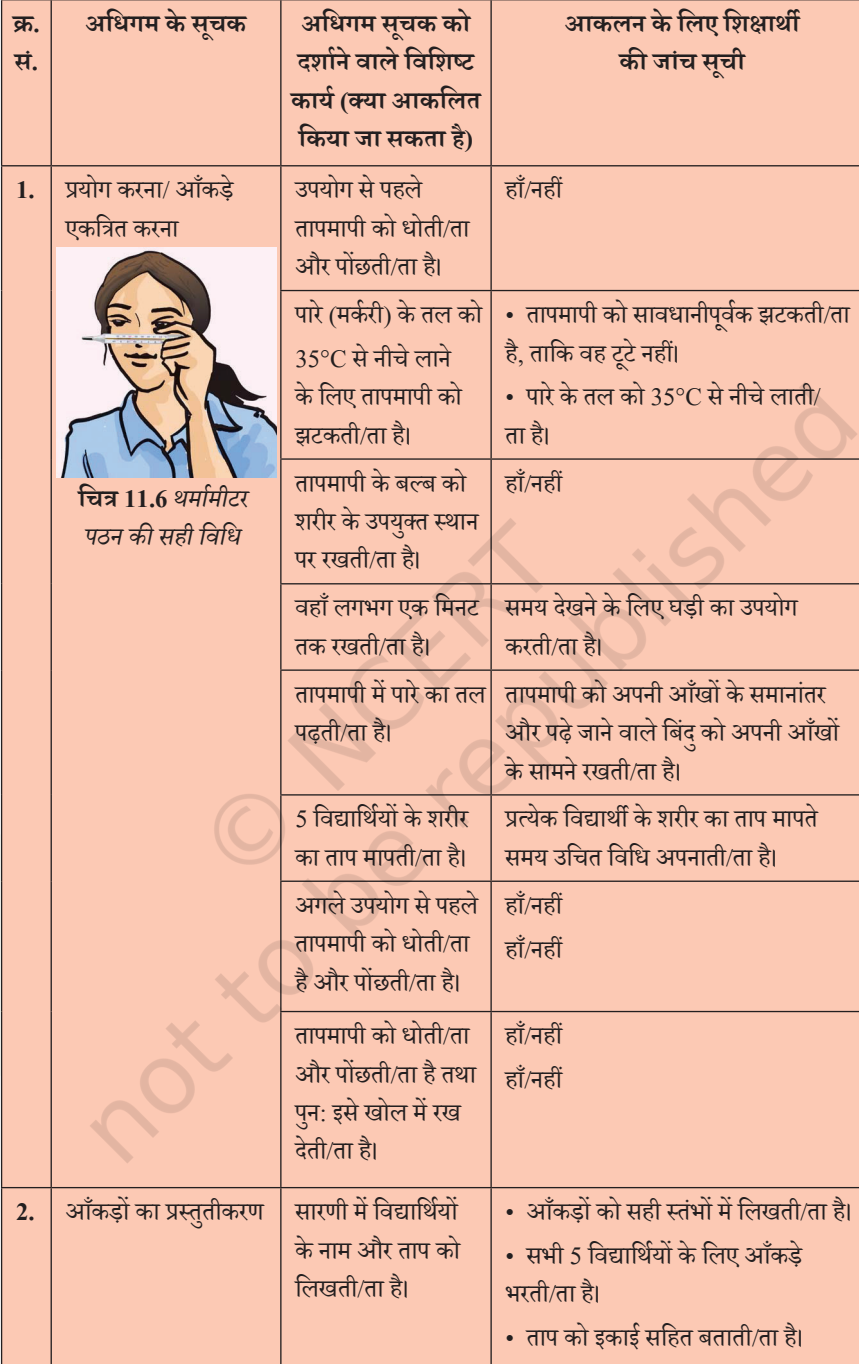 क्र. सं.
अधिगम के सूचक
अधिगम सूचक को
दर्शाने वाले विशिष्ट
कार्य (क्या आकलित
किया जा सकता है)
आकलन के लिए शिक्षार्थी
की जांच सूची
1.
प्रयोग करना/ आँकड़े
एकत्रित करना
चित्र 11.6 थर्मामीटर
पठन की सही विधि
उपयोग से पहले
तापमापी को धोती/ता
और पोंछती/ता है।
हाँ/नहीं
पारे (मर्करी) के तल को
35°C से नीचे लाने
के लिए तापमापी को
झटकती/ता है।
• तापमापी को सावधानीपूर्वक झटकती/ता
है, ताकि वह टूटे नहीं।
• पारे के तल को 35°C से नीचे लाती/
ता है।
तापमापी के बल्ब को
शरीर के उपयुक्त स्थान
पर रखती/ता है।
हाँ/नहीं
वहाँ लगभग एक मिनट
तक रखती/ता है।
समय देखने के लिए घड़ी का उपयोग
करती/ता है।
तापमापी में पारे का तल
पढ़ती/ता है।
तापमापी को अपनी आँखों के समानांतर
और पढ़े जाने वाले बिंदु को अपनी आँखों
के सामने रखती/ता है।
5 विद्यार्थियों के शरीर
का ताप मापती/ता है।
प्रत्येक विद्यार्थी के शरीर का ताप मापते
समय उचित विधि अपनाती/ता है।
अगले उपयोग से पहले
तापमापी को धोती/ता
है और पोंछती/ता है।
हाँ/नहीं
हाँ/नहीं
तापमापी को धोती/ता
और पोंछती/ता है तथा
पुन: इसे खोल में रख
देती/ता है।
हाँ/नहीं
हाँ/नहीं
2.
आँकड़ों का प्रस्तुतीकरण
सारणी में विद्यार्थियों
के नाम और ताप को
लिखती/ता है।
• आँकड़ों को सही स्तंभों में लिखती/ता है।
• सभी 5 विद्यार्थियों के लिए आँकड़े
भरती/ता है।
• ताप को इकाई सहित बताती/ता है।
© NCERT
not to be republished